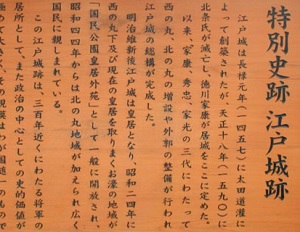 特別史跡 江戸城跡
江戸城は長禄元年(一四五七)に太田道灌に
よって創築されたが、天正十八年(一五九〇)に
北条氏が滅亡し、徳川家康が居城をここに定めた。
以来、家康、秀忠、家光の三代にわたって
西の丸、北の丸の増設や外郭の整備が行われ
江戸城の総構が完成した。
明治維新後江戸城は皇居となり、昭和二四年に
西の丸下及び現在の皇居を取りまくお濠の地域が
「国民公園皇居外苑」として一般に開放され、
昭和四四年からは北の丸地域が加えられ広く
国民に親しまれている。
この江戸城跡は、三百年近くにわたる将軍の
居所として、また政治の中心としての史的価値が